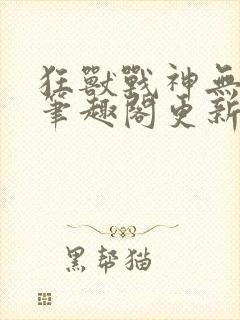 狂獸戰神無
筆趣閣更新
黑幫猫